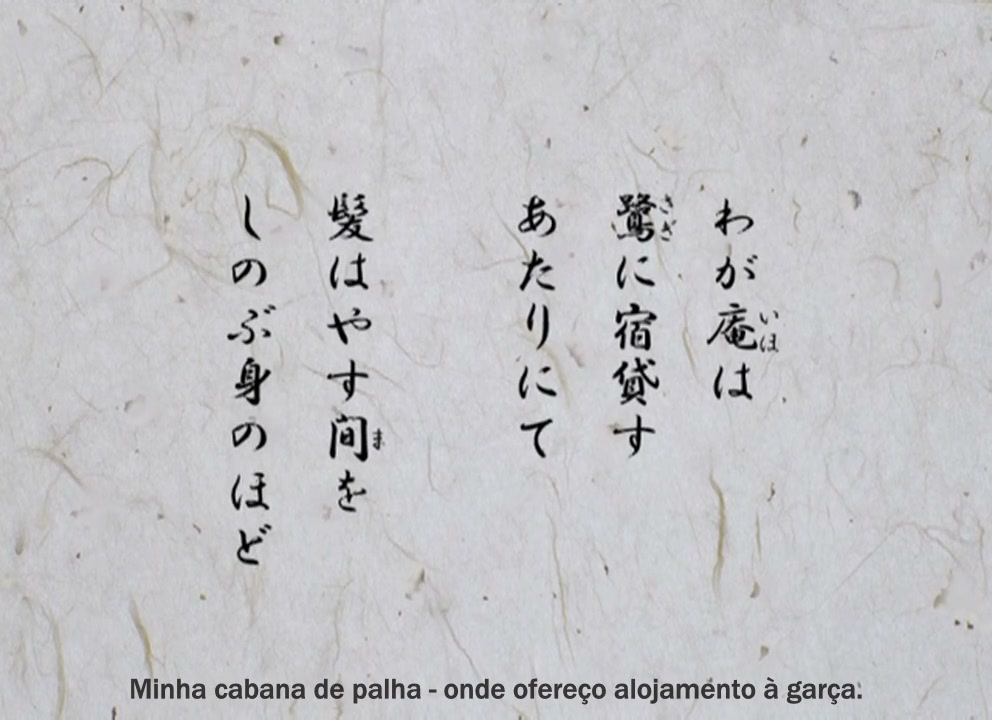 わが庵は
鷺に宿貸す
あたりにて
髪はやす間を
しのぶ身のほど
いほ
さぎ
ま
Minha cabana de palha - onde ofereço alojamento à garça.